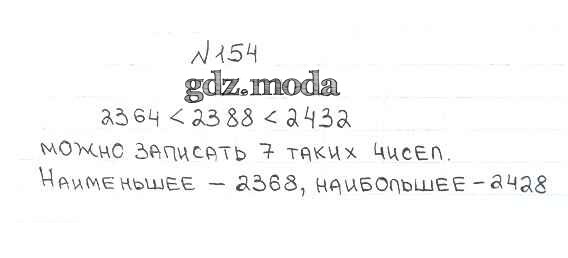 №154
gdz.moda
2364 < 2388 < 2432
МОЖНО ЗАПИСАТЬ 7 ТАКИХ ЧИСЕЛ.
НАИМЕНЬШЕЕ – 2368, НАИБОЛЬШЕЕ – 2428